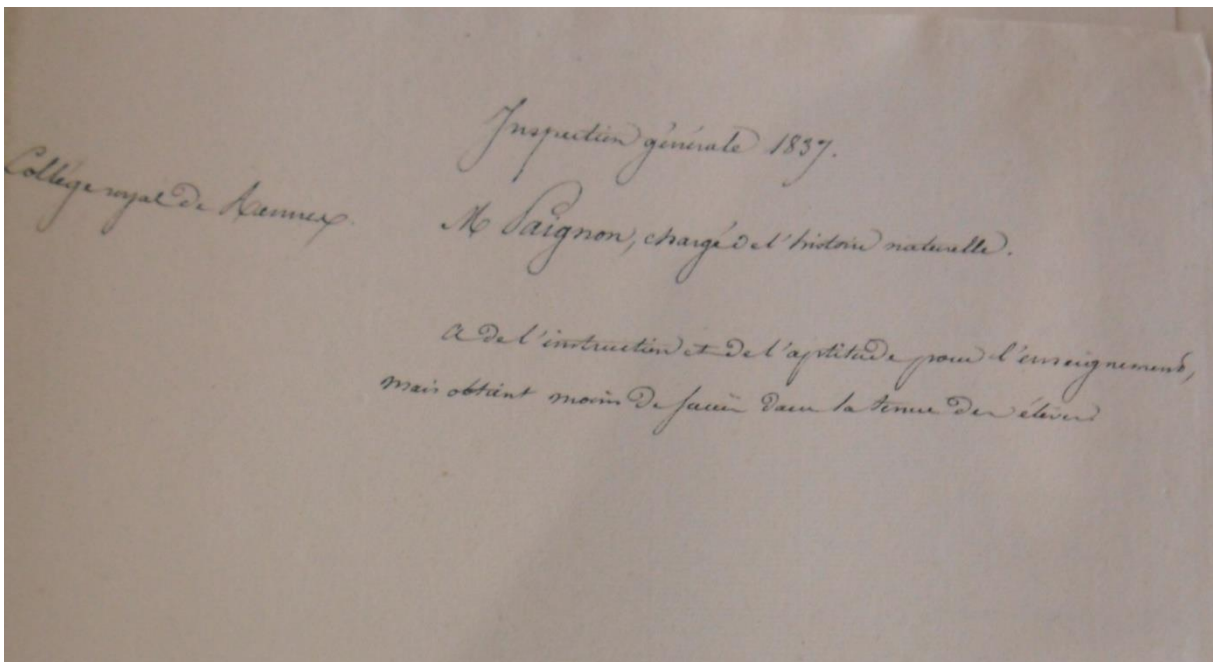 Inspection générale 1837.
Collège royal de Rennes.
M Paignon, chargé de l'histoire naturelle.
a de l'instruction et de l'aptitude pour l'enseignement,
mais obtient moins de succès dans la tenue des élèves